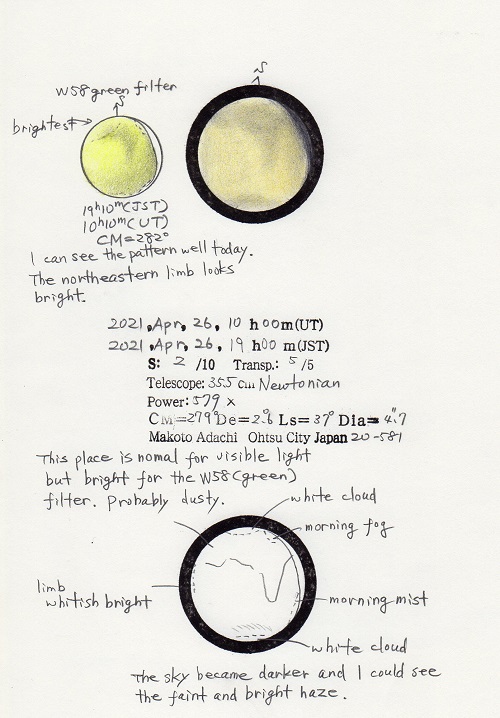 N
W58 green filter
N
brightest
19h10m(JST)
10h10m(UT)
CM=282°
I can see the pattern well today.
The northeastern limb looks
bright.
2021, Apr, 26, 10 h 00 m(UT)
2021, Apr, 26, 19 h 00 m(JST)
S: 2 /10 Transp.: 5 /5
Telescope: 355 cm Newtonian
Power: 579 ×
CM=279° De=2.°6 Ls=37° Dia=4."7
Makoto Adachi Ohtsu City Japan 20-581
This place is nomal for visible light
but bright for the W58(green)
filter. Probably dusty.
white cloud
morning fog
limb
whitish bright
morning mist
white cloud
The sky became darker and I could see
the faint and bright haze.